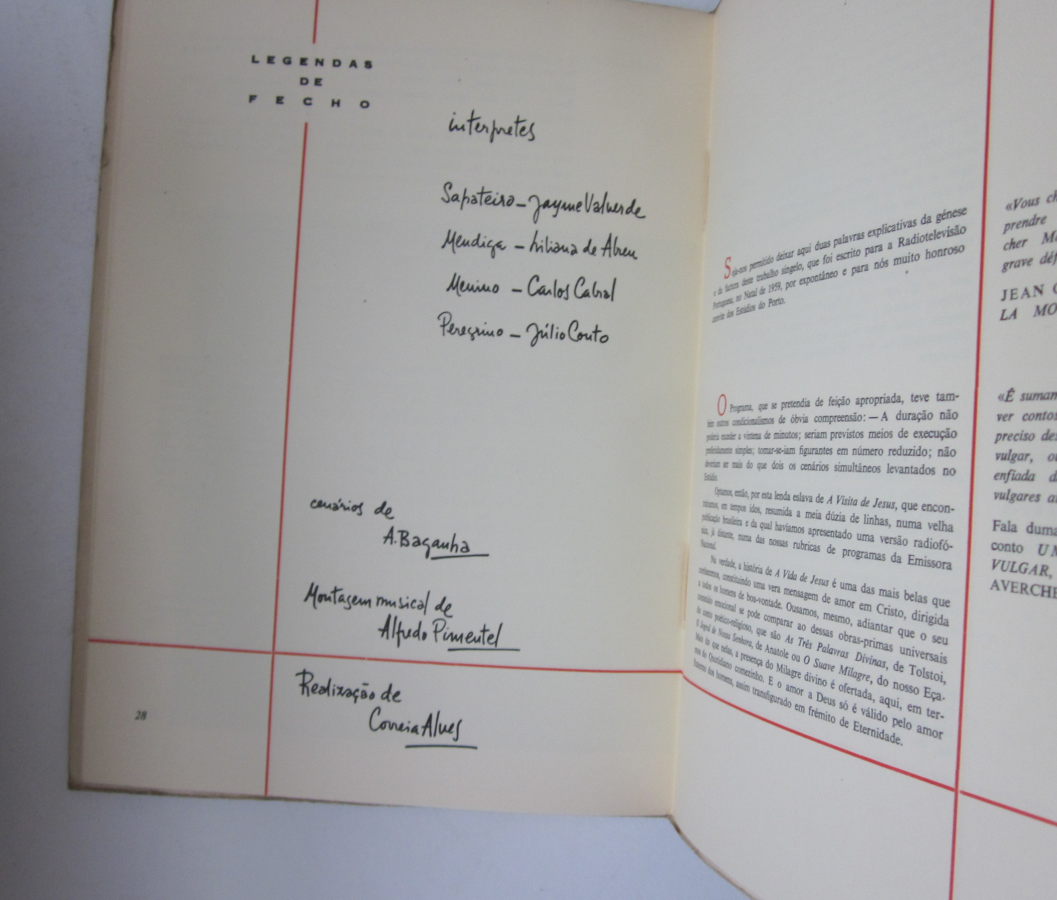 LEGENDAS
DE
FECHO
interpretes
Sapateiro - Jayme Valverde
Mendiga - Liliana de Abreu
Menino - Carlos Cabral
Peregrino - Júlio Couto
cenários de
A. Baganha
Montagem musical de
Alfredo Pimentel
Realização de
Correia Alves
28
Seja-nos permitido deixar aqui duas palavras explicativas da génese
e da feitura deste trabalho singelo, que foi escrito para a Radiotelevisão
Portuguesa, no Natal de 1959, por espontâneo e para nós muito honroso
convite dos Estúdios do Porto.
O Programa, que se pretendia de feição apropriada, teve tam-
bém outros condicionalismos de óbvia compreensão: — A duração não
poderia exceder a vintena de minutos; seriam previstos meios de execução
perfeitamente simples; tomar-se-iam figurantes em número reduzido; não
deveriam ser mais do que dois os cenários simultâneos levantados no
Estúdio.
Optámos, então, por esta lenda eslava de A Visita de Jesus, que encon-
tráramos, em tempos idos, resumida a meia dúzia de linhas, numa velha
publicação brasileira e da qual havíamos apresentado uma versão radiofó-
nica, já distante, numa das nossas rubricas de programas da Emissora
Nacional.
Na verdade, a história de A Vida de Jesus é uma das mais belas que
conhecemos, constituindo uma vera mensagem de amor em Cristo, dirigida
a todos os homens de boa-vontade. Ousamos, mesmo, adiantar que o seu
conteúdo emocional se pode comparar ao dessas obras-primas universais
do conto poético-religioso, que são As Três Palavras Divinas, de Tolstoi,
O Jogral de Nossa Senhora, de Anatole ou O Suave Milagre, do nosso Eça.
Mais do que nelas, a presença do Milagre divino é ofertada, aqui, em ter-
mos do Quotidiano comezinho. E o amor a Deus só é válido pelo amor
fraterno dos homens, assim transfigurado em frémito de Eternidade.
«Vous ch
prendre
cher Mo
grave déf
JEAN C
LA MO
«É suman
ver conto
preciso de
vulgar, o
enfiada d
vulgares a
Fala duma
conto UM
VULGAR,
AVERCHE